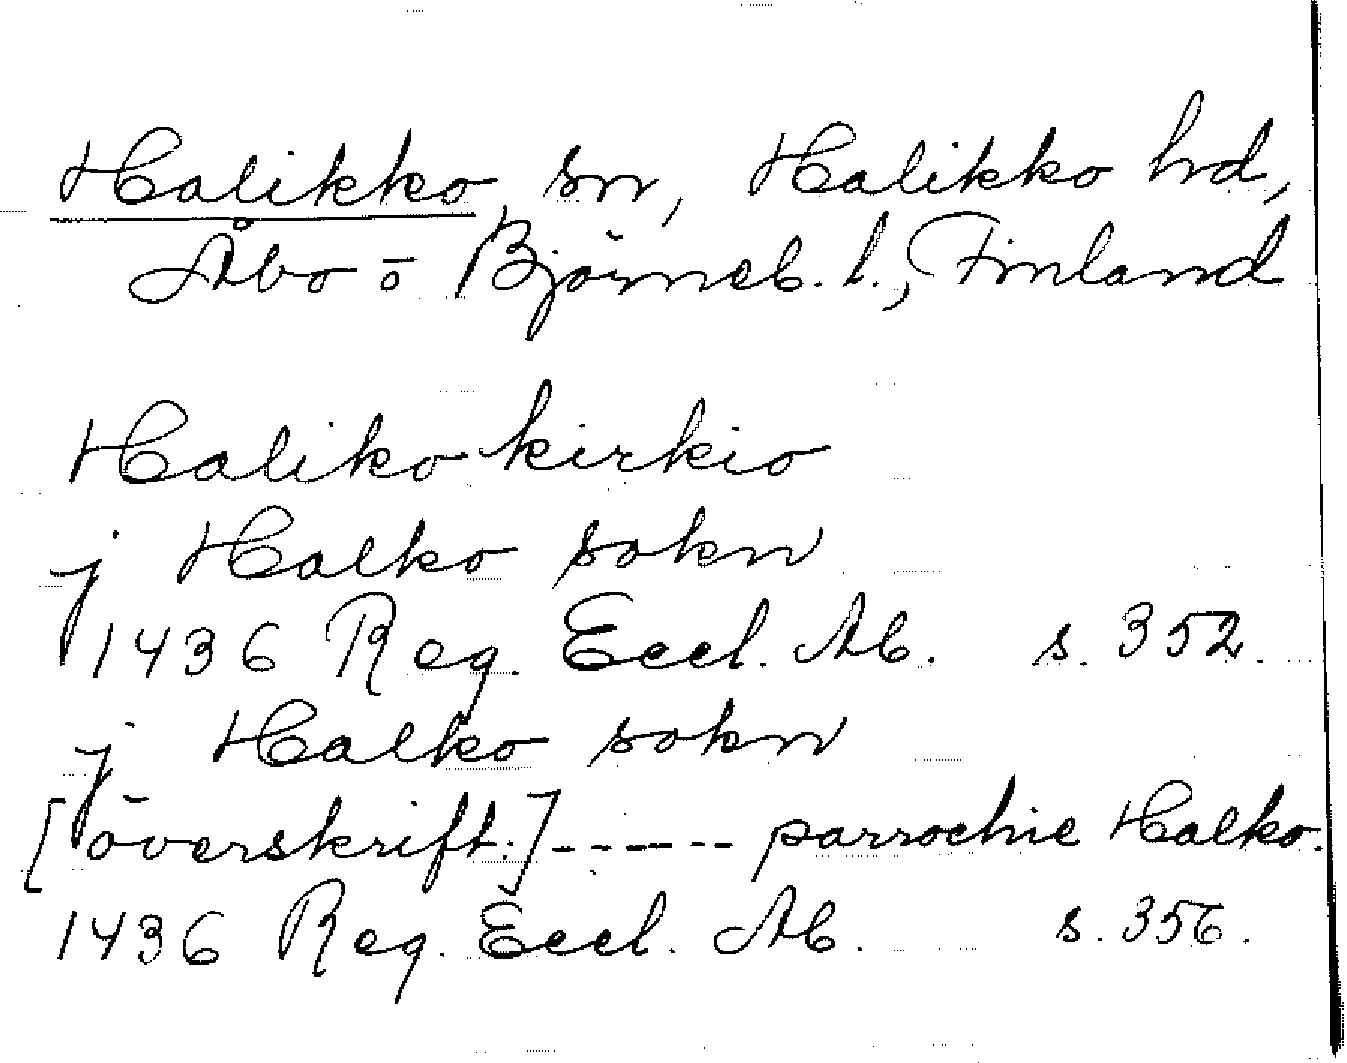 Halikko sn, Halikko hd,
Åbo o Björneb. l., Finland
Haliko kirkio
j Halko sokn
1436 Reg. Eccl. Ab. s. 352.
j Halko sokn
[överskrift.] ------ parrochie Halko.
1436 Reg. Eccl. Ab. s. 356.